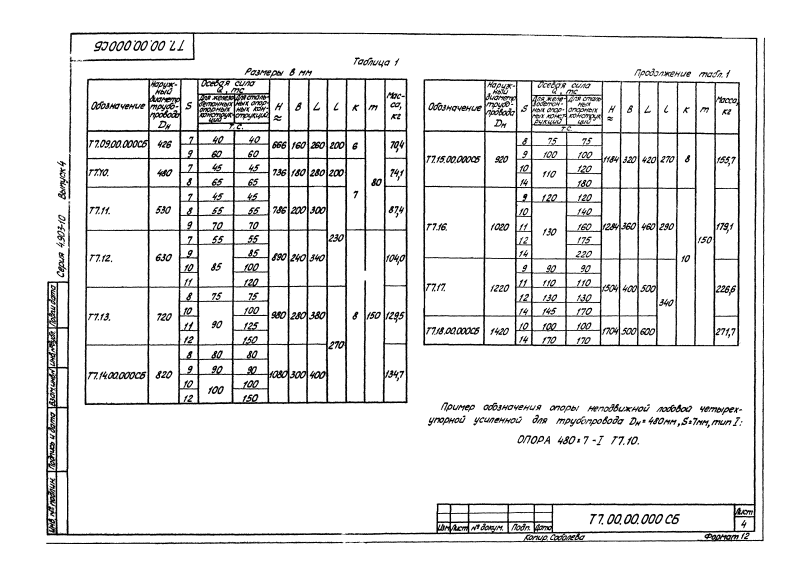 Т7.00.00.000СБ
Таблица 1
Размеры в мм
Обозначение | Наружный диаметр трубопровода Dн | S | Осевая сила Q, тс | H ≈ | B | L | l | к | m | Масса, кг
Для железобетонных опорных конструкций | Для стальных опорных конструкций
т.с.
Т7.09.00.000СБ | 426 | 7 | 40 | 40 | 666 | 160 | 260 | 200 | 6 | 80 | 70,4
9 | 60 | 60
Т7.10. | 480 | 7 | 45 | 45 | 736 | 180 | 280 | 200 | 7 | 74,1
8 | 65 | 65
Т7.11. | 530 | 7 | 45 | 45 | 786 | 200 | 300 | 230 | 87,4
8 | 55 | 55
9 | 70 | 70
Т7.12. | 630 | 7 | 55 | 55 | 890 | 240 | 340 | 8 | 150 | 104,0
9 | 85 | 85
10 | 100
11 | 120
Т7.13. | 720 | 8 | 75 | 75 | 980 | 280 | 380 | 270 | 129,5
10 | 90 | 100
11 | 125
12 | 150
Т7.14.00.000СБ | 820 | 8 | 80 | 80 | 1080 | 300 | 400 | 134,7
9 | 90 | 90
10 | 100 | 100
12 | 150
Продолжение табл. 1
Обозначение | Наружный диаметр трубопровода Dн | S | Осевая сила Q, тс | H ≈ | B | L | l | к | m | Масса, кг
Для железобетонных опорных конструкций | Для стальных опорных конструкций
т.с.
Т7.15.00.000СБ | 920 | 8 | 75 | 75 | 1184 | 320 | 420 | 270 | 8 | 150 | 155,7
9 | 100 | 100
10 | 110 | 120
14 | 180
Т7.16. | 1020 | 9 | 120 | 120 | 1284 | 360 | 460 | 290 | 10 | 179,1
10 | 130 | 140
11 | 160
12 | 175
14 | 220
Т7.17. | 1220 | 9 | 90 | 90 | 1504 | 400 | 500 | 340 | 226,6
11 | 110 | 110
12 | 130 | 130
14 | 145 | 170
Т7.18.00.000СБ | 1420 | 10 | 100 | 100 | 1704 | 500 | 600 | 271,7
14 | 170 | 170
Пример обозначения опоры неподвижной лобовой четырех-
упорной усиленной для трубопровода Dн=480мм, S=7мм, тип I:
ОПОРА 480×7-I Т7.10.
Серия 4.903-10 Выпуск 4
Инв. № подлин. | Подпись и дата | Взам. инв № | Инв. № дубл. | Подпи дата
Изм | Лист | № докум. | Подп. | Дата
Т7.00.00.000 СБ
Лист
4
Копир. Соболева
Формат 12